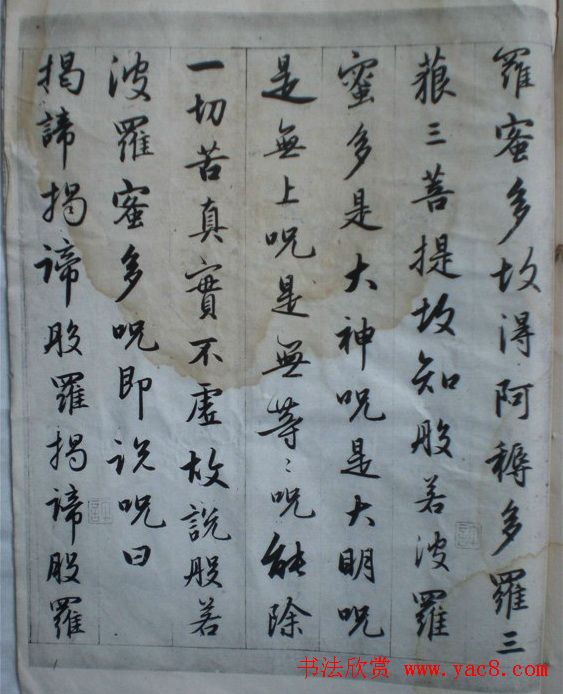 羅蜜多故得阿耨多羅三
藐三菩提故知般若波羅
蜜多是大神咒是大明咒
是無上咒是無等〻咒能除
一切苦真實不虛故說般若
波羅蜜多咒即說咒曰
揭諦揭諦般羅揭諦般羅
书法欣赏 www.yac8.com